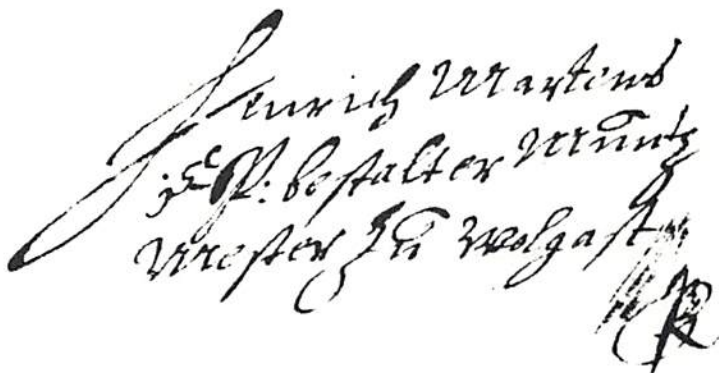 Henrich Martens
F: P: bestalter Müntz
Mester zu Wolgast